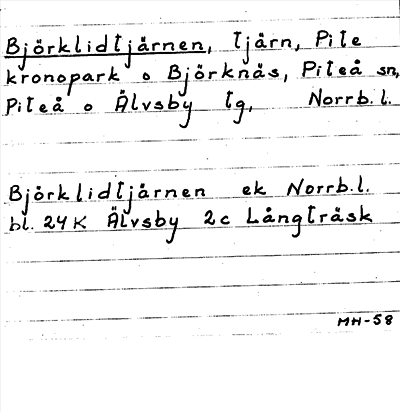 Björklidtjärnen, tjärn, Pite
kronopark o Björknäs, Piteå sn,
Piteå o Älvsby tg, Norrb.l.
Björklidtjärnen ek Norrb.l.
bl. 24K Älvsby 2c Långträsk
MH-58